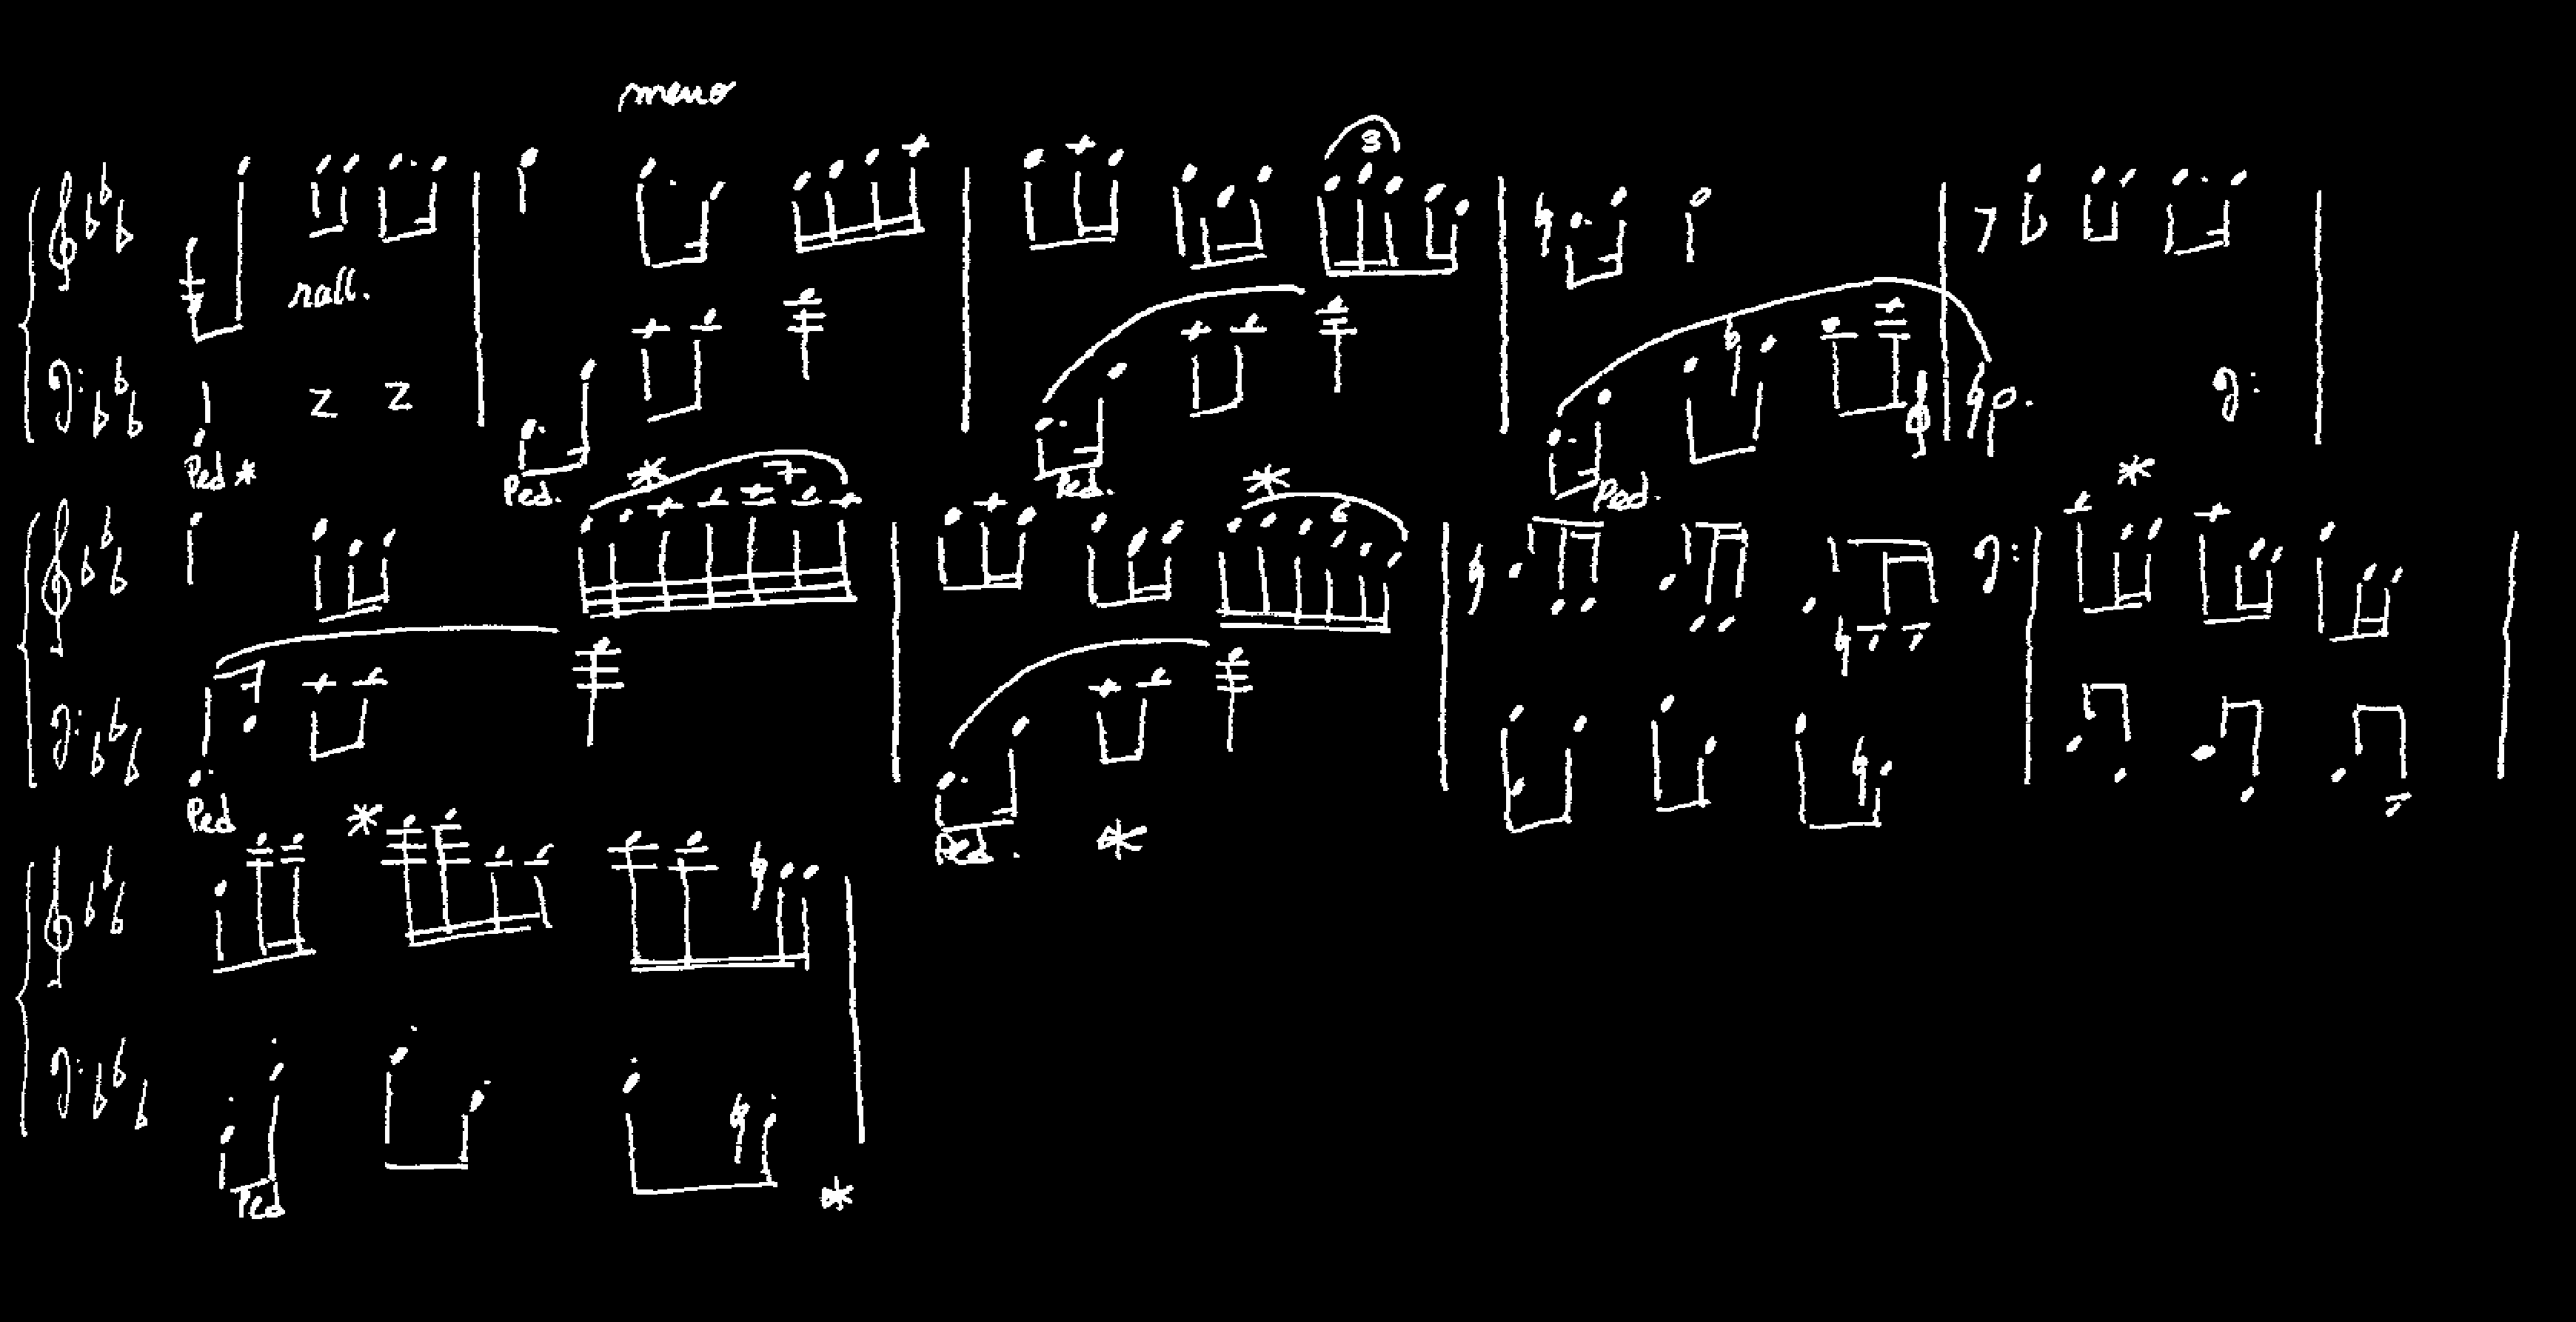 meno
3
rall.
Ped * Ped. * Ped. * Ped. *
7 6
Ped * Ped. *
Ped *